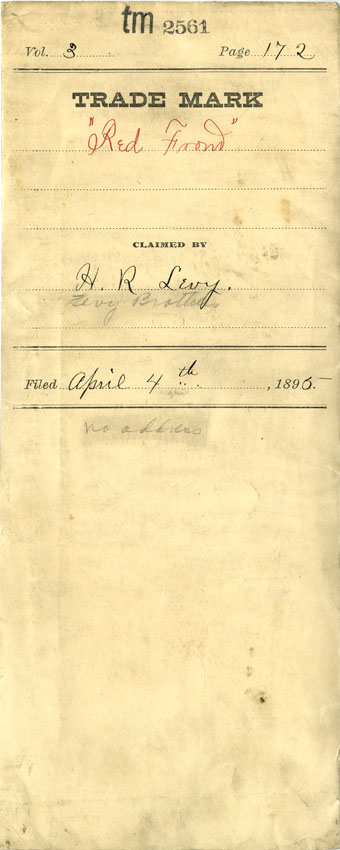 tm 2561
Vol. 3 Page 172
TRADE MARK
"Red Front"
CLAIMED BY
H. R Levy.
Levy Brothers
Filed April 4th, 1895-
no address